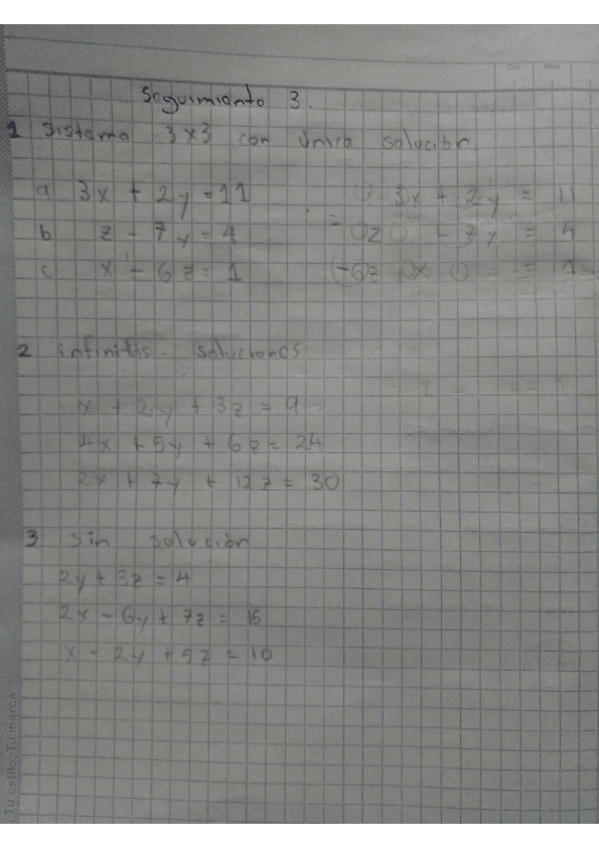 Seguimiento 3.
1 Sistema 3x3 con única solución.
a 3x + 2y = 11 3x + 2y = 11
b z - 7y = 4 = z - 7y = 4
c x - 6z = 1 -6z x = 1
2 infinitas soluciones
x + 2y + 3z = 9
4x + 5y + 6z = 24
2x + 7y + 12z = 30
3 sin solución
2y + 3z = 4
2x - 6y + 7z = 15
x - 2y + 5z = 10
Tu estilo, Tu marca